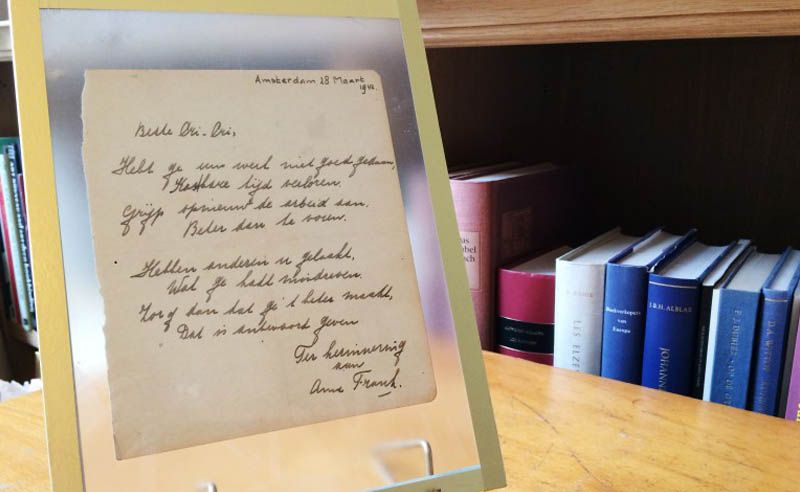 Amsterdam 28 Maart
1942.
Beste Cri-Cri,
Hebt ge uw werk niet goed gedaan,
Kostbare tijd verloren.
Grijp opnieuw de arbeid aan.
Beter dan te voren.
Hebben anderen u gelaakt,
Wat ge hadt misdreven.
Zorg dan dat ge 't beter maakt,
Dat is antwoord geven
Ter herinnering
aan
Anne Frank.
LES ELZE
Boekverkopers
van
Europa
ALBLAS
JOHANN